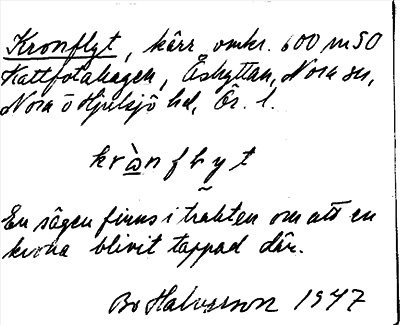 Kronflyt, kärr omkr. 600 m SO
Kattfotahagen, Åshyttan, Nora sn,
Nora o Hjulsjö hd, Ör. l.
krὼnflyt
En sägen finns i trakten om att en
krona blivit tappad där.
Bo Halvarsson 1947